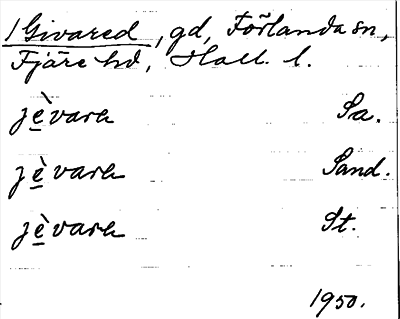 1 Givared, gd, Förlanda sn,
Fjäre hd, Hall. l.
jè̱vara Sa.
jè̱vara Sand.
jè̱vara St.
1950.